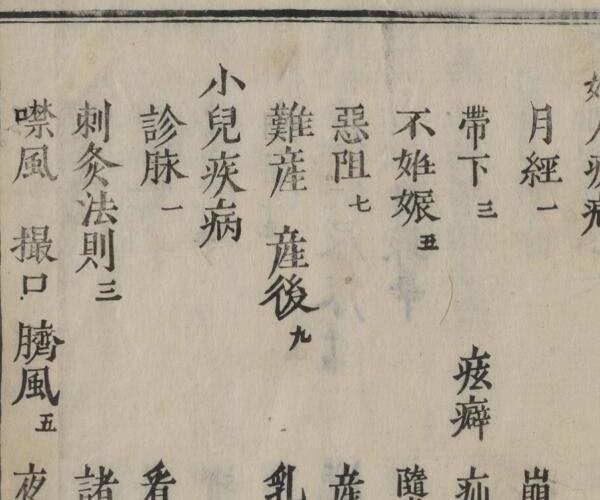 人疾病
月經一 崩
帶下三 痃癖 疝
不姙娠五 隨
惡阻七 産
難産 産後九 乳
小兒疾病
診脉一 看
刺灸法則三 諸
噤風 撮口 臍風五 夜